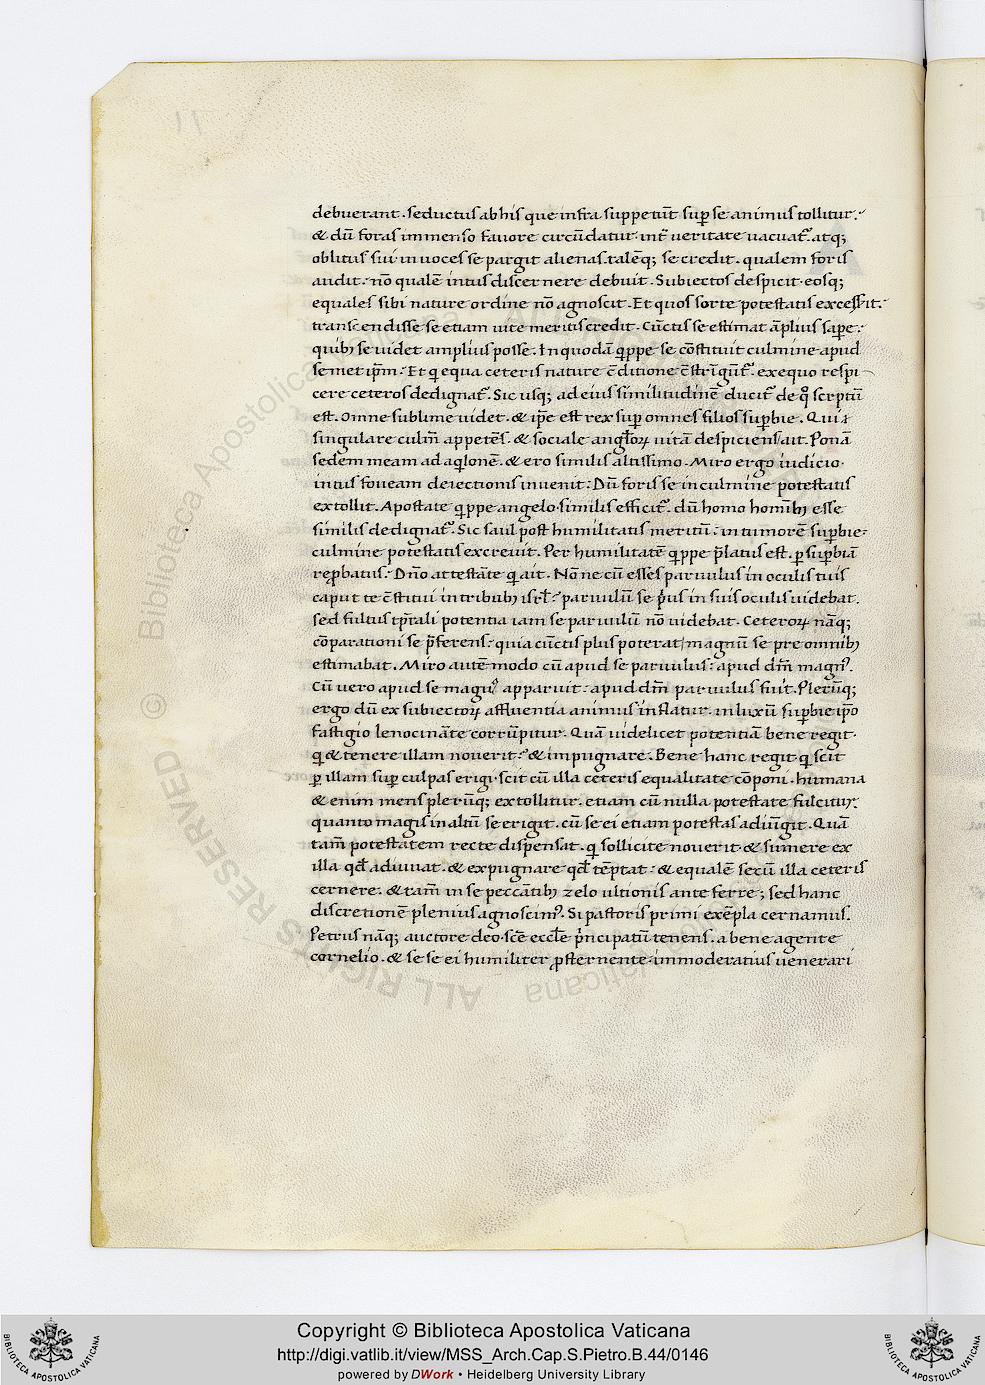 debuerant. seductus ab his que infra suppetūt sup̱ se animus tollitur.
& dū foras immenso favore circūdatur. int̄ veritate vacuat᷑. atq;
oblitus sui in voces se pargit alienas. talēq; se credit. qualem foris
audit. nō qualē intus discernere debuit. Subiectos despicit. eosq;
equales sibi nature ordine nō agnoscit. Et quos sorte potestatis excesserit.
transcendisse se etiam uite meritis credit. Cūctis se estimat āplius sap̱e.
quib; se uidet amplius posse. In quodā q̄ppe se cōstituit culmine apud
semet ip̄m. Et qi equa ceteris nature c̄ditione c̄strīgit᷑. ex equo respi
cere ceteros dedignat᷑. Sic usq; ad eius similitudinē ducit᷑ de qo scrptū
est. Omne sublime videt. & ip̄e est rex sup̱ omnes filios sup̱bie. Qui
singulare culm̄ appetēs. & sociale angl̄oꝝ uitā despiciens ait. Ponā
sedem meam ad aqilonē. & ero similis altissimo. Miro ergo iudicio.
intus foveam deiectionis invenit. Dū foris se in culmine potestatis
extollit. Apostate q̄ppe angelo similis efficit᷑. dū homo homīb; esse
similis dedignat᷑. Sic saul post humilitatis meritū. in tumorē sup̱bie
culmine potestatis excrevit. Per humilitatē q̄ppe p̄latus est. ꝑ sup̱biā
rep̱batus. Dn̄o attestāte qi ait. Nōne cū esses parvulus in oculis tuis
caput te c̄stitui in tribub; isrl̄. parvulū se p̄us in suis oculis uidebat.
sed fultus tp̄rali potentia iam se parvulū nō videbat. Ceteroꝝ nāq;
cōparationi se p̄ferens. quia cūctis plus poterat/ magnū se pre omnib;
estimabat. Miro autē modo cū apud se parvulus. apud dm̄ magnꝰ.
Cū vero apud se magnꝰ apparuit. apud dm̄ parvulus fuit. Plerūq;
ergo dū ex subiectoꝝ affluentia animus inflatur. in luxū sup̱bie ip̄o
fastigio lenocināte corrūpitur. Quā uidelicet potentiā bene regit.
qi & tenere illam noverit. & impugnare. Bene hanc regit. qi scit
ꝑ illam sup̱ culpas erigi. scit cū illa ceteris equalitate cōponi. humana
& enim mens plerūq; extollitur. etiam cū nulla potestate fulcitur.
quanto magis in altū se erigit. cū se ei etiam potestas adiūgit. Quā
tam̄ potestatem recte dispensat. qi sollicite noverit. & sumere ex
illa qd̄ adiuuat. & expugnare qd̄ tēptat. & equalē se cū illa ceteris
cernere. & tam̄ in se peccātib; zelo ultionis ante ferre; sed hanc
discretionē plenius agnoscimꝰ. Si pastoris primi exēpla cernamus.
Petrus nāq; auctore deo. sc̄e eccl̄e p̄ncipatū tenens. a bene agente
cornelio. & se se ei humiliter ꝓsternente. immoderatius uenerari
Copyright © Biblioteca Apostolica Vaticana
http://digi.vatlib.it/view/MSS_Arch.Cap.S.Pietro.B.44/0146
powered by DWork • Heidelberg University Library
© Biblioteca Apostolica Vaticana
ALL RIGHTS RESERVED